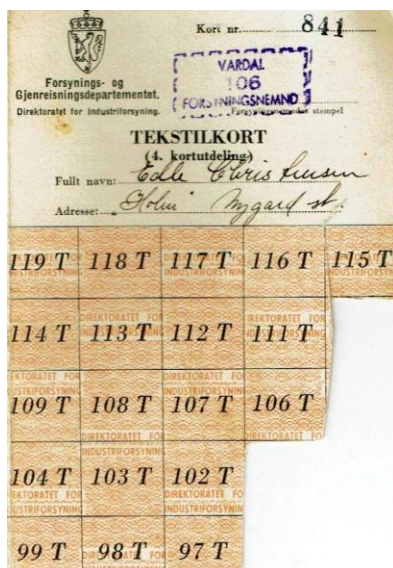 Kort nr. 841
Forsynings- og
Gjenreisningsdepartementet.
Direktoratet for Industriforsyning.
VARDAL
106
FORSYNINGSNEMND
Forsyningsnemndas stempel
TEKSTILKORT
(4. kortutdeling)
Fullt navn: Edle Christensen
Adresse: Holm Nygard st.
119 T 118 T 117 T 116 T 115 T
114 T 113 T 112 T 111 T
109 T 108 T 107 T 106 T
104 T 103 T 102 T
99 T 98 T 97 T